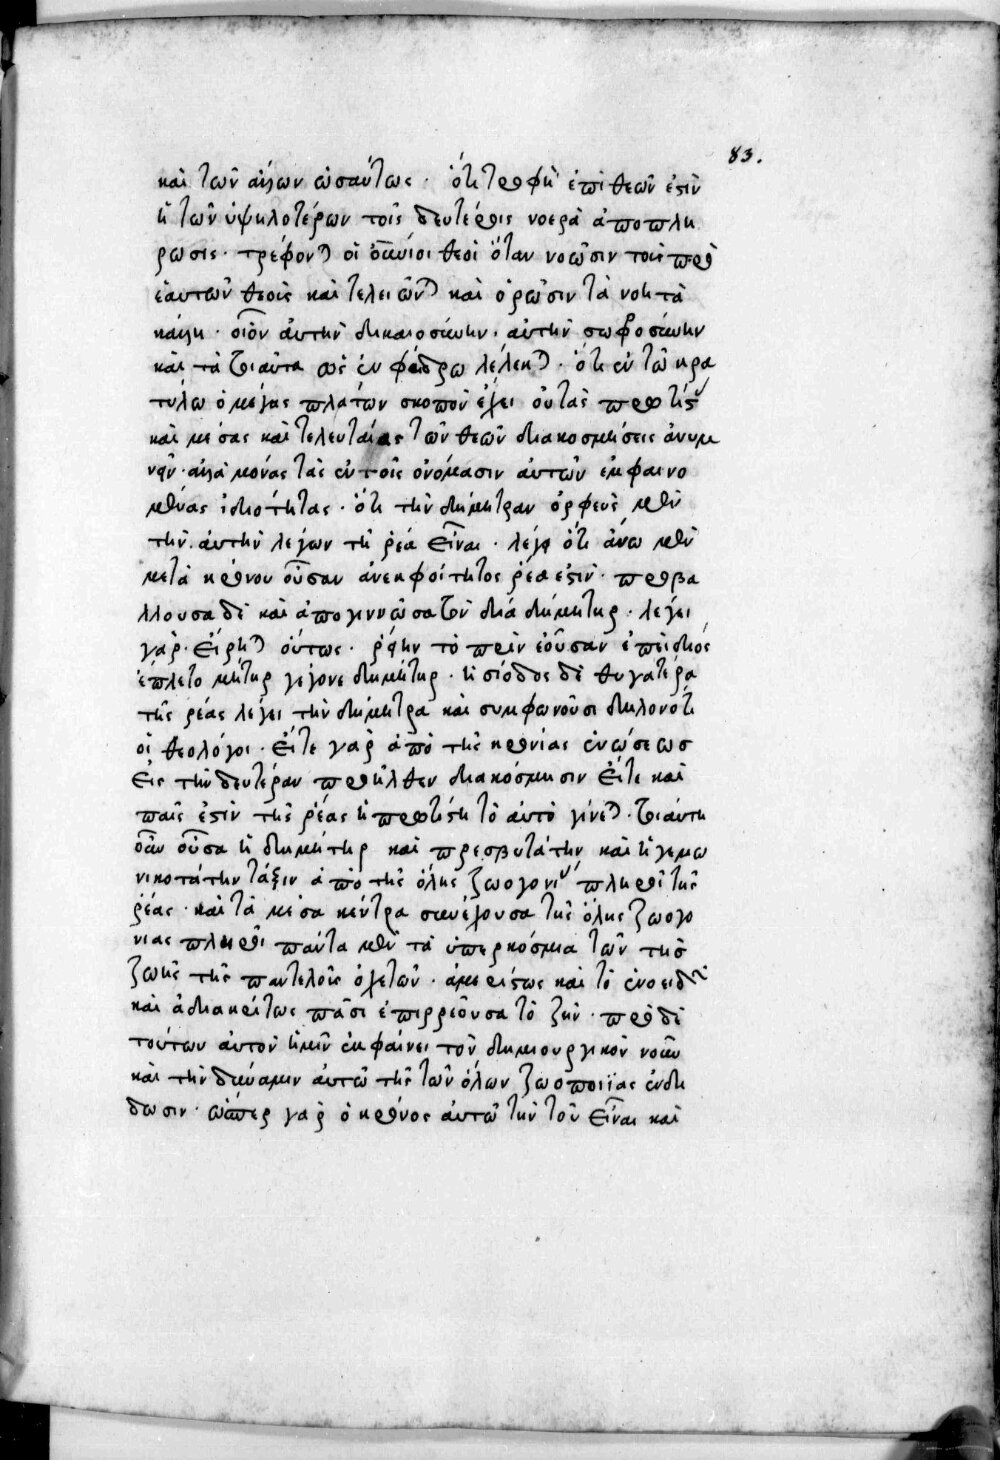 83.
καὶ τῶν ἄλλων ὡσαύτως · ὅτι τροφὴ ἐπὶ θεῶν ἐστὶν
ἡ τῶν ὑψηλοτέρων τοῖς δευτέροις νοερὰ ἀποπλή
ρωσις · τρέφονται οἱ θεοὶ ὅταν νοῶσιν τοὺς πρὸ
ἑαυτῶν θεοὺς καὶ τελειῶνται καὶ ὁρῶσιν τὰ νοητὰ
κάλλη · οἷον αὐτὴν δικαιοσύνην · αὐτὴν σωφροσύνην
καὶ τὰ τοιαῦτα ὡς ἐν φαίδρω λέλεκται · ὅτι ἐν τῶ κρα
τύλω ὁ μέγας πλάτων σκοπὸν ἔχει οὐ τὰς πρωτίστας
καὶ μέσας καὶ τελευταίας τῶν θεῶν διακοσμήσεις ἀνυμ
νεῖν · ἀλλὰ μόνας τὰς ἐν τοῖς ὀνόμασιν αὐτῶν ἐμφαινο
μένας ἰδιότητας · ὅτι τὴν δήμητραν ὀρφεὺς μὲν
τὴν αὐτὴν λέγων τῆ ῥέα εἶναι · λέγει ὅτι ἄνω μὲν
μετὰ κρόνου οὖσαν ἀνεκφοίτητος ῥέα ἐστὶν · προβα
λλουσα δὲ καὶ ἀπογεννῶσα τὸν δία δημήτηρ · λέγει
γὰρ · εἴρηται οὕτως · ῥείην τὸ πρὶν ἐοῦσαν ἐπεὶ διὸς
ἔπλετο μήτηρ γέγονε δημήτηρ · ἡσίοδος δὲ θυγατέρα
τῆς ῥέας λέγει τὴν δήμητρα καὶ συμφωνοῦσι δηλονότι
οἱ θεολόγοι · εἴτε γὰρ ἀπὸ τῆς κρονίας ἑνώσεως
εἰς τὴν δευτέραν προῆλθεν διακόσμησιν εἴτε καὶ
παῖς ἐστὶν τῆς ῥέας ἡ πρωτίστη τὸ αὐτὸ γίνεται · τοιαύτη
οὖν οὖσα ἡ δημήτηρ καὶ πρεσβυτάτην καὶ ἡγεμω
νικοτάτην τάξιν ἀπὸ τῆς ὅλης ζωογονίας πληροῖ τῆς
ῥέας · καὶ τὰ μέσα κέντρα συνέχουσα τῆς ὅλης ζωογο
νίας πληροῖ πάντα μὲν τὰ ὑπερκόσμια τῶν τῆς
ζωῆς τῆς παντελοῦς ὀχετῶν · ἀμερίστως καὶ τὸ ἑνοειδῆ
καὶ ἀδιακρίτως πᾶσι ἐπιρρέουσα τὸ ζῆν · πρὸ δὲ
τούτων αὐτὸν ἡμῖν ἐκφαίνει τὸν δημιουργικὸν νοῦν
καὶ τὴν δύναμιν αὐτῶ τῆς τῶν ὅλων ζωοποιΐας ἐνδί
δωσιν · ὥσπερ γὰρ ὁ κρόνος αὐτῶ τὴν τοῦ εἶναι καὶ